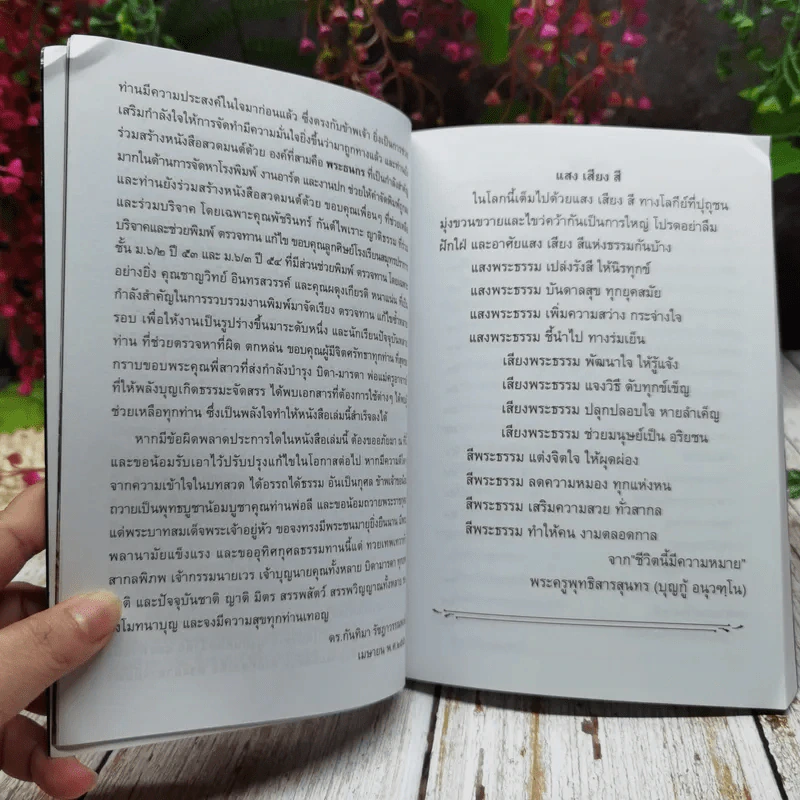 ท่านมีความประสงค์ในใจมาก่อนแล้ว ซึ่งตรงกับข้าพเจ้า
เสริมกำลังใจให้การจัดทำมีความมั่นใจยิ่งขึ้นว่ามาถูกทางแล้ว และท่านยัง
ร่วมสร้างหนังสือสวดมนต์ด้วย องค์ที่สามคือ พระธนกร ที่เป็นกำลังสำคัญ
มากในด้านการจัดหาโรงพิมพ์ งานอาร์ต และงานปก ช่วยให้
และท่านยังร่วมสร้างหนังสือสวดมนต์ด้วย ขอบคุณเพื่อนๆ
และร่วมบริจาค โดยเฉพาะคุณพัชรินทร์ กันต์ไพเราะ ญาติธรรม
บริจาคและช่วยพิมพ์ ตรวจทาน แก้ไข ขอบคุณลูกศิษย์โรงเรียน
ชั้น ม.๖/๒ ปี ๕๓ และ ม.๖/๓ ปี ๕๔ ที่มีส่วนช่วยพิมพ์ ตรวจทาน
อย่างยิ่ง คุณชาญวิทย์ อินทรสวรรค์ และคุณผดุงเกียรติ หนาแน่น
กำลังสำคัญในการรวบรวมงานพิมพ์มาจัดเรียง ตรวจทาน
รอบ เพื่อให้งานเป็นรูปร่างขึ้นมาระดับหนึ่ง และนักเรียนปัจจุบัน
ท่าน ที่ช่วยตรวจหาที่ผิด ตกหล่น ขอบคุณผู้มีจิตศรัทธาทุกท่าน
กราบขอบพระคุณพี่สาวที่ส่งกำลังบำรุง บิดา-มารดา พ่อแม่ครูอาจารย์
ที่ให้พลังบุญเกิดธรรมะจัดสรร ได้พบเอกสารที่ต้องการใช้ต่างๆ
ช่วยเหลือทุกท่าน ซึ่งเป็นพลังใจทำให้หนังสือเล่มนี้สำเร็จลงได้
หากมีข้อผิดพลาดประการใดในหนังสือเล่มนี้ ต้องขออภัยมา ณ
และขอน้อมรับเอาไว้ปรับปรุงแก้ไขในโอกาสต่อไป หากมีความดี
จากความเข้าใจในบทสวด ได้อรรถได้ธรรม อันเป็นกุศล
ถวายเป็นพุทธบูชาน้อมบูชาคุณท่านพ่อลี และขอน้อมถวาย
แด่พระบาทสมเด็จพระเจ้าอยู่หัว ขอจงทรงมีพระชนมายุยิ่งยืนนาน
พลานามัยแข็งแรง และขออุทิศกุศลธรรมทานนี้แด่
สากลพิภพ เจ้ากรรมนายเวร เจ้าบุญนายคุณทั้งหลาย บิดามารดา
และปัจจุบันชาติ ญาติ มิตร สรรพสัตว์ สรรพวิญญาณทั้งหลาย
และจงมีความสุขทุกท่านเทอญ
ดร.กันทิมา
เมษายน
แสง เสียง สี
ในโลกนี้เต็มไปด้วยแสง เสียง สี ทางโลกีย์ที่ปุถุชน
มุ่งขวนขวายและไขว่คว้ากันเป็นการใหญ่ โปรดอย่าลืม
ฝักใฝ่ และอาศัยแสง เสียง สีแห่งธรรมกันบ้าง
แสงพระธรรม เปล่งรังสี ให้นิรทุกข์
แสงพระธรรม บันดาลสุข ทุกยุคสมัย
แสงพระธรรม เพิ่มความสว่าง กระจ่างใจ
แสงพระธรรม ชี้นำไป ทางร่มเย็น
เสียงพระธรรม พัฒนาใจ ให้รู้แจ้ง
เสียงพระธรรม แจงวิธี ดับทุกข์เข็ญ
เสียงพระธรรม ปลุกปลอบใจ หายลำเค็ญ
เสียงพระธรรม ช่วยมนุษย์เป็น อริยชน
สีพระธรรม แต่งจิตใจ ให้ผุดผ่อง
สีพระธรรม ลดความหมอง ทุกแห่งหน
สีพระธรรม เสริมความสวย ทั่วสากล
สีพระธรรม ทำให้คน งามตลอดกาล
จาก"ชีวิตนี้มีความหมาย"
พระครูพุทธิสารสุนทร (บุญกู้ อนุวฑฺโน)